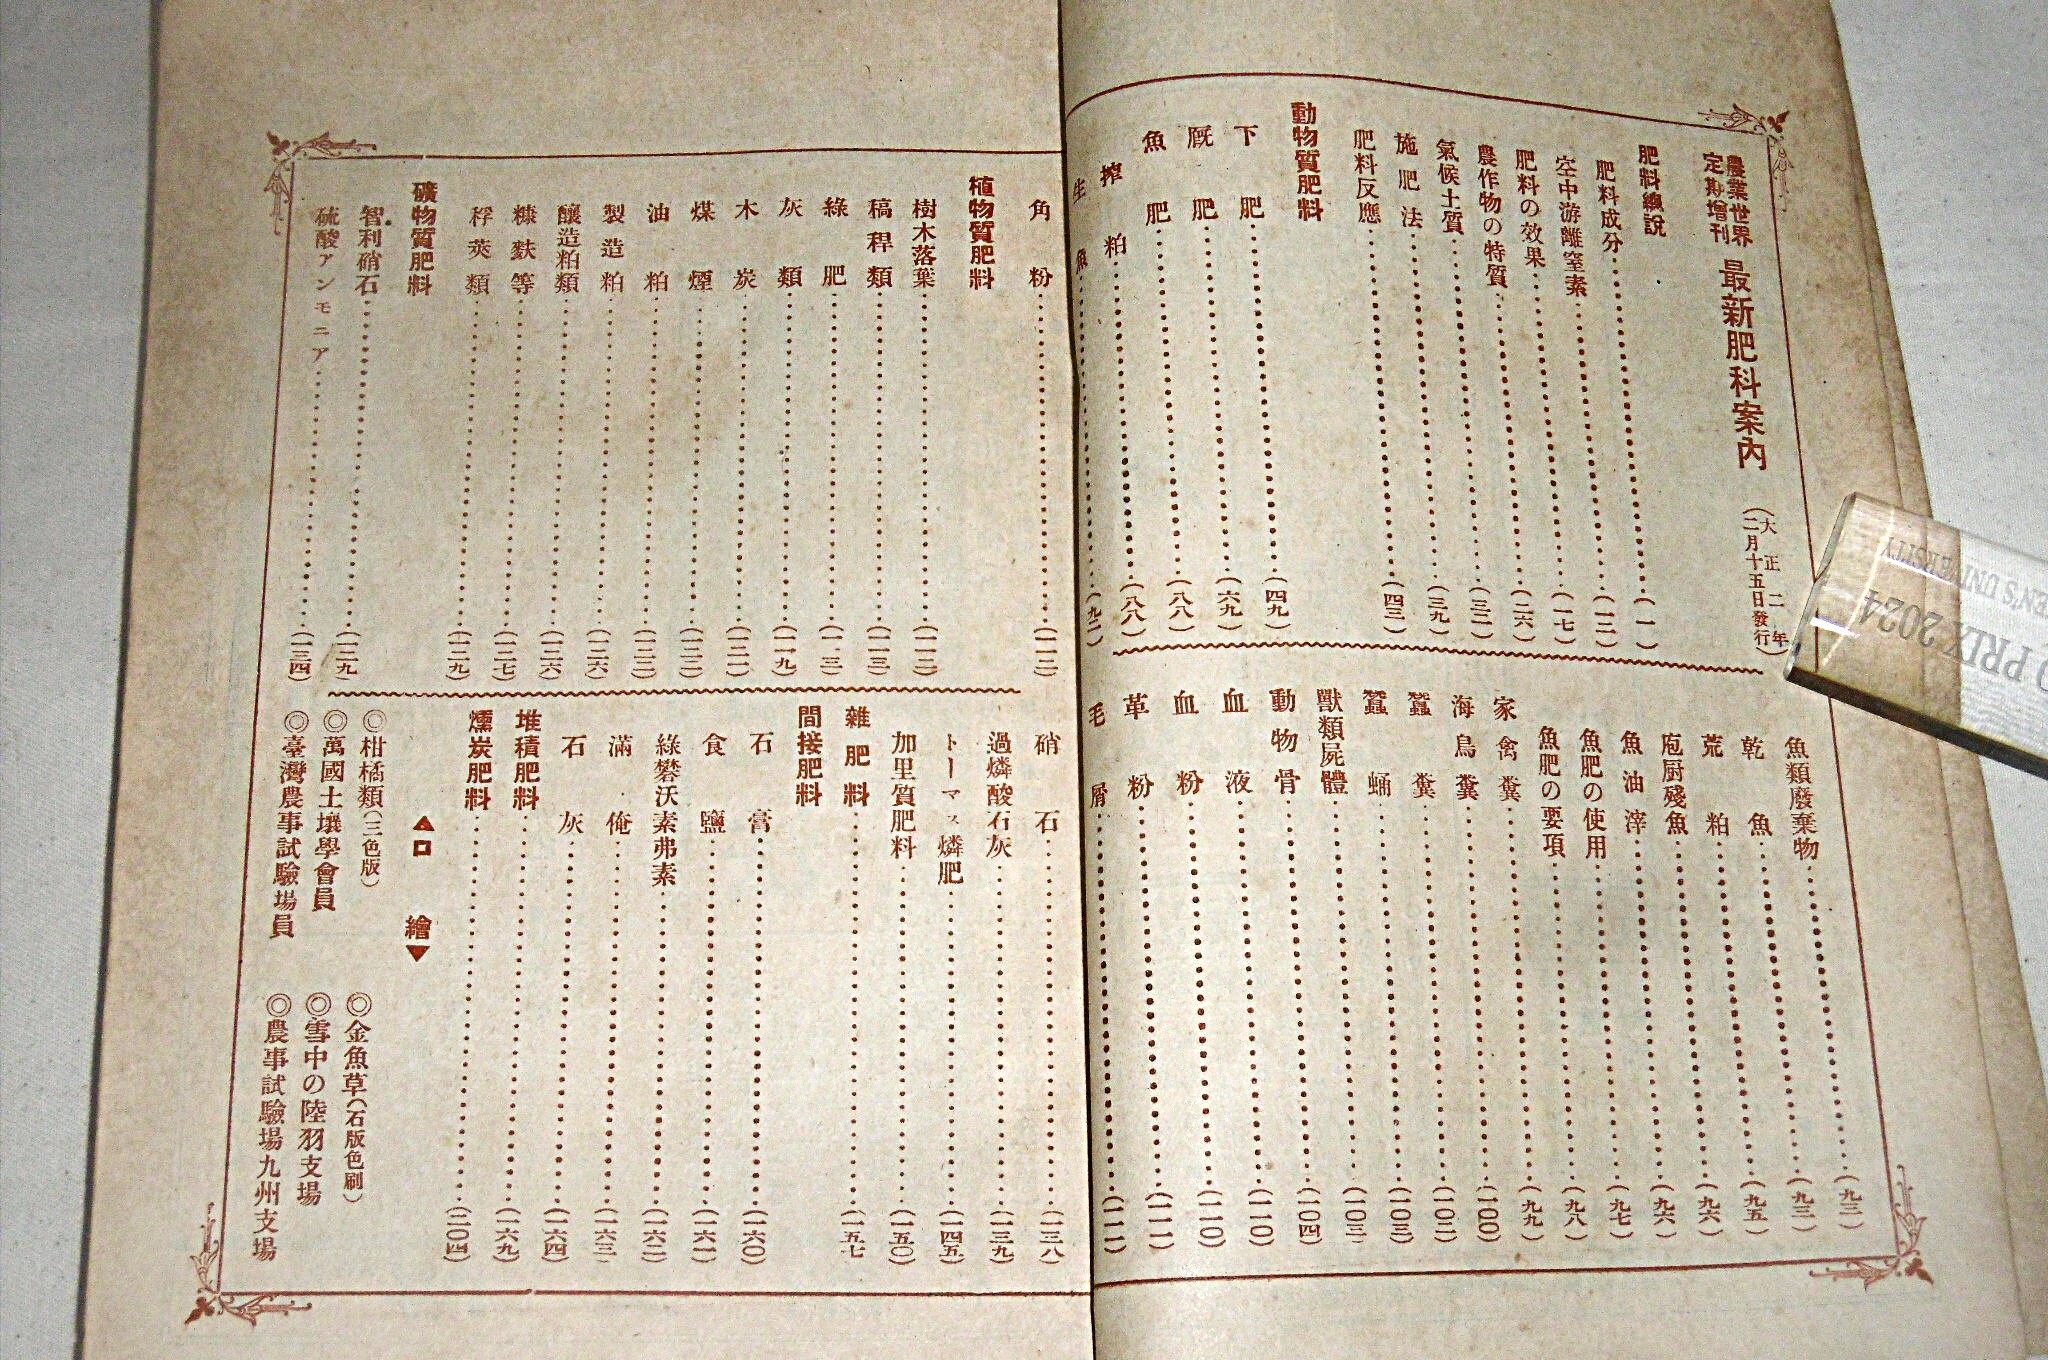 農業世界
定期增刊
最新肥料案內
(大正二年
二月十五日發行)
肥料總說………(一)
肥料成分………(一二)
空中游離窒素………(一七)
肥料の效果………(二六)
農作物の特質………(三一)
氣候土質………(三九)
施肥法………(四三)
肥料反應
動物質肥料
下肥………(四九)
厩肥………(六九)
魚肥………(八八)
搾粕………(八八)
生魚………(九二)
魚類廢棄物………(九三)
乾魚………(九三)
荒粕………(九五)
庖厨殘魚………(九六)
魚油滓………(九六)
魚肥の使用………(九七)
魚肥の要項………(九八)
家禽糞………(九九)
海鳥糞………(一〇〇)
蠶糞………(一〇二)
蠶蛹………(一〇三)
獸類屍體………(一〇三)
動物骨………(一〇四)
血液………(一一〇)
血粉………(一一〇)
革粉………(一一一)
毛屑………(一一一)
角粉………(一一二)
植物質肥料
樹木落葉………(一一二)
稿稈類………(一一三)
綠肥………(一一三)
灰類………(一一九)
木炭………(一二一)
煤煙………(一二二)
油粕………(一二三)
製造粕………(一二六)
釀造粕類………(一二六)
糠麩等………(一二七)
稃莢類………(一二九)
礦物質肥料
智利硝石………(一二九)
硫酸アンモニア………(一三四)
硝石………(一三八)
過燐酸石灰………(一三九)
トーマス燐肥………(一四五)
加里質肥料………(一五〇)
雜肥料………(一五七)
間接肥料
石膏………(一六〇)
食鹽………(一六一)
綠礬沃素弗素………(一六二)
滿俺………(一六三)
石灰………(一六四)
堆積肥料………(一六九)
燻炭肥料………(二〇四)
▲口繪▼
◎柑橘類(三色版)
◎金魚草(石版色刷)
◎萬國土壤學會員
◎雪中の陸羽支場
◎臺灣農事試驗場員
◎農事試驗場九州支場
PRIX 2024
EN'S UNIVERSITY